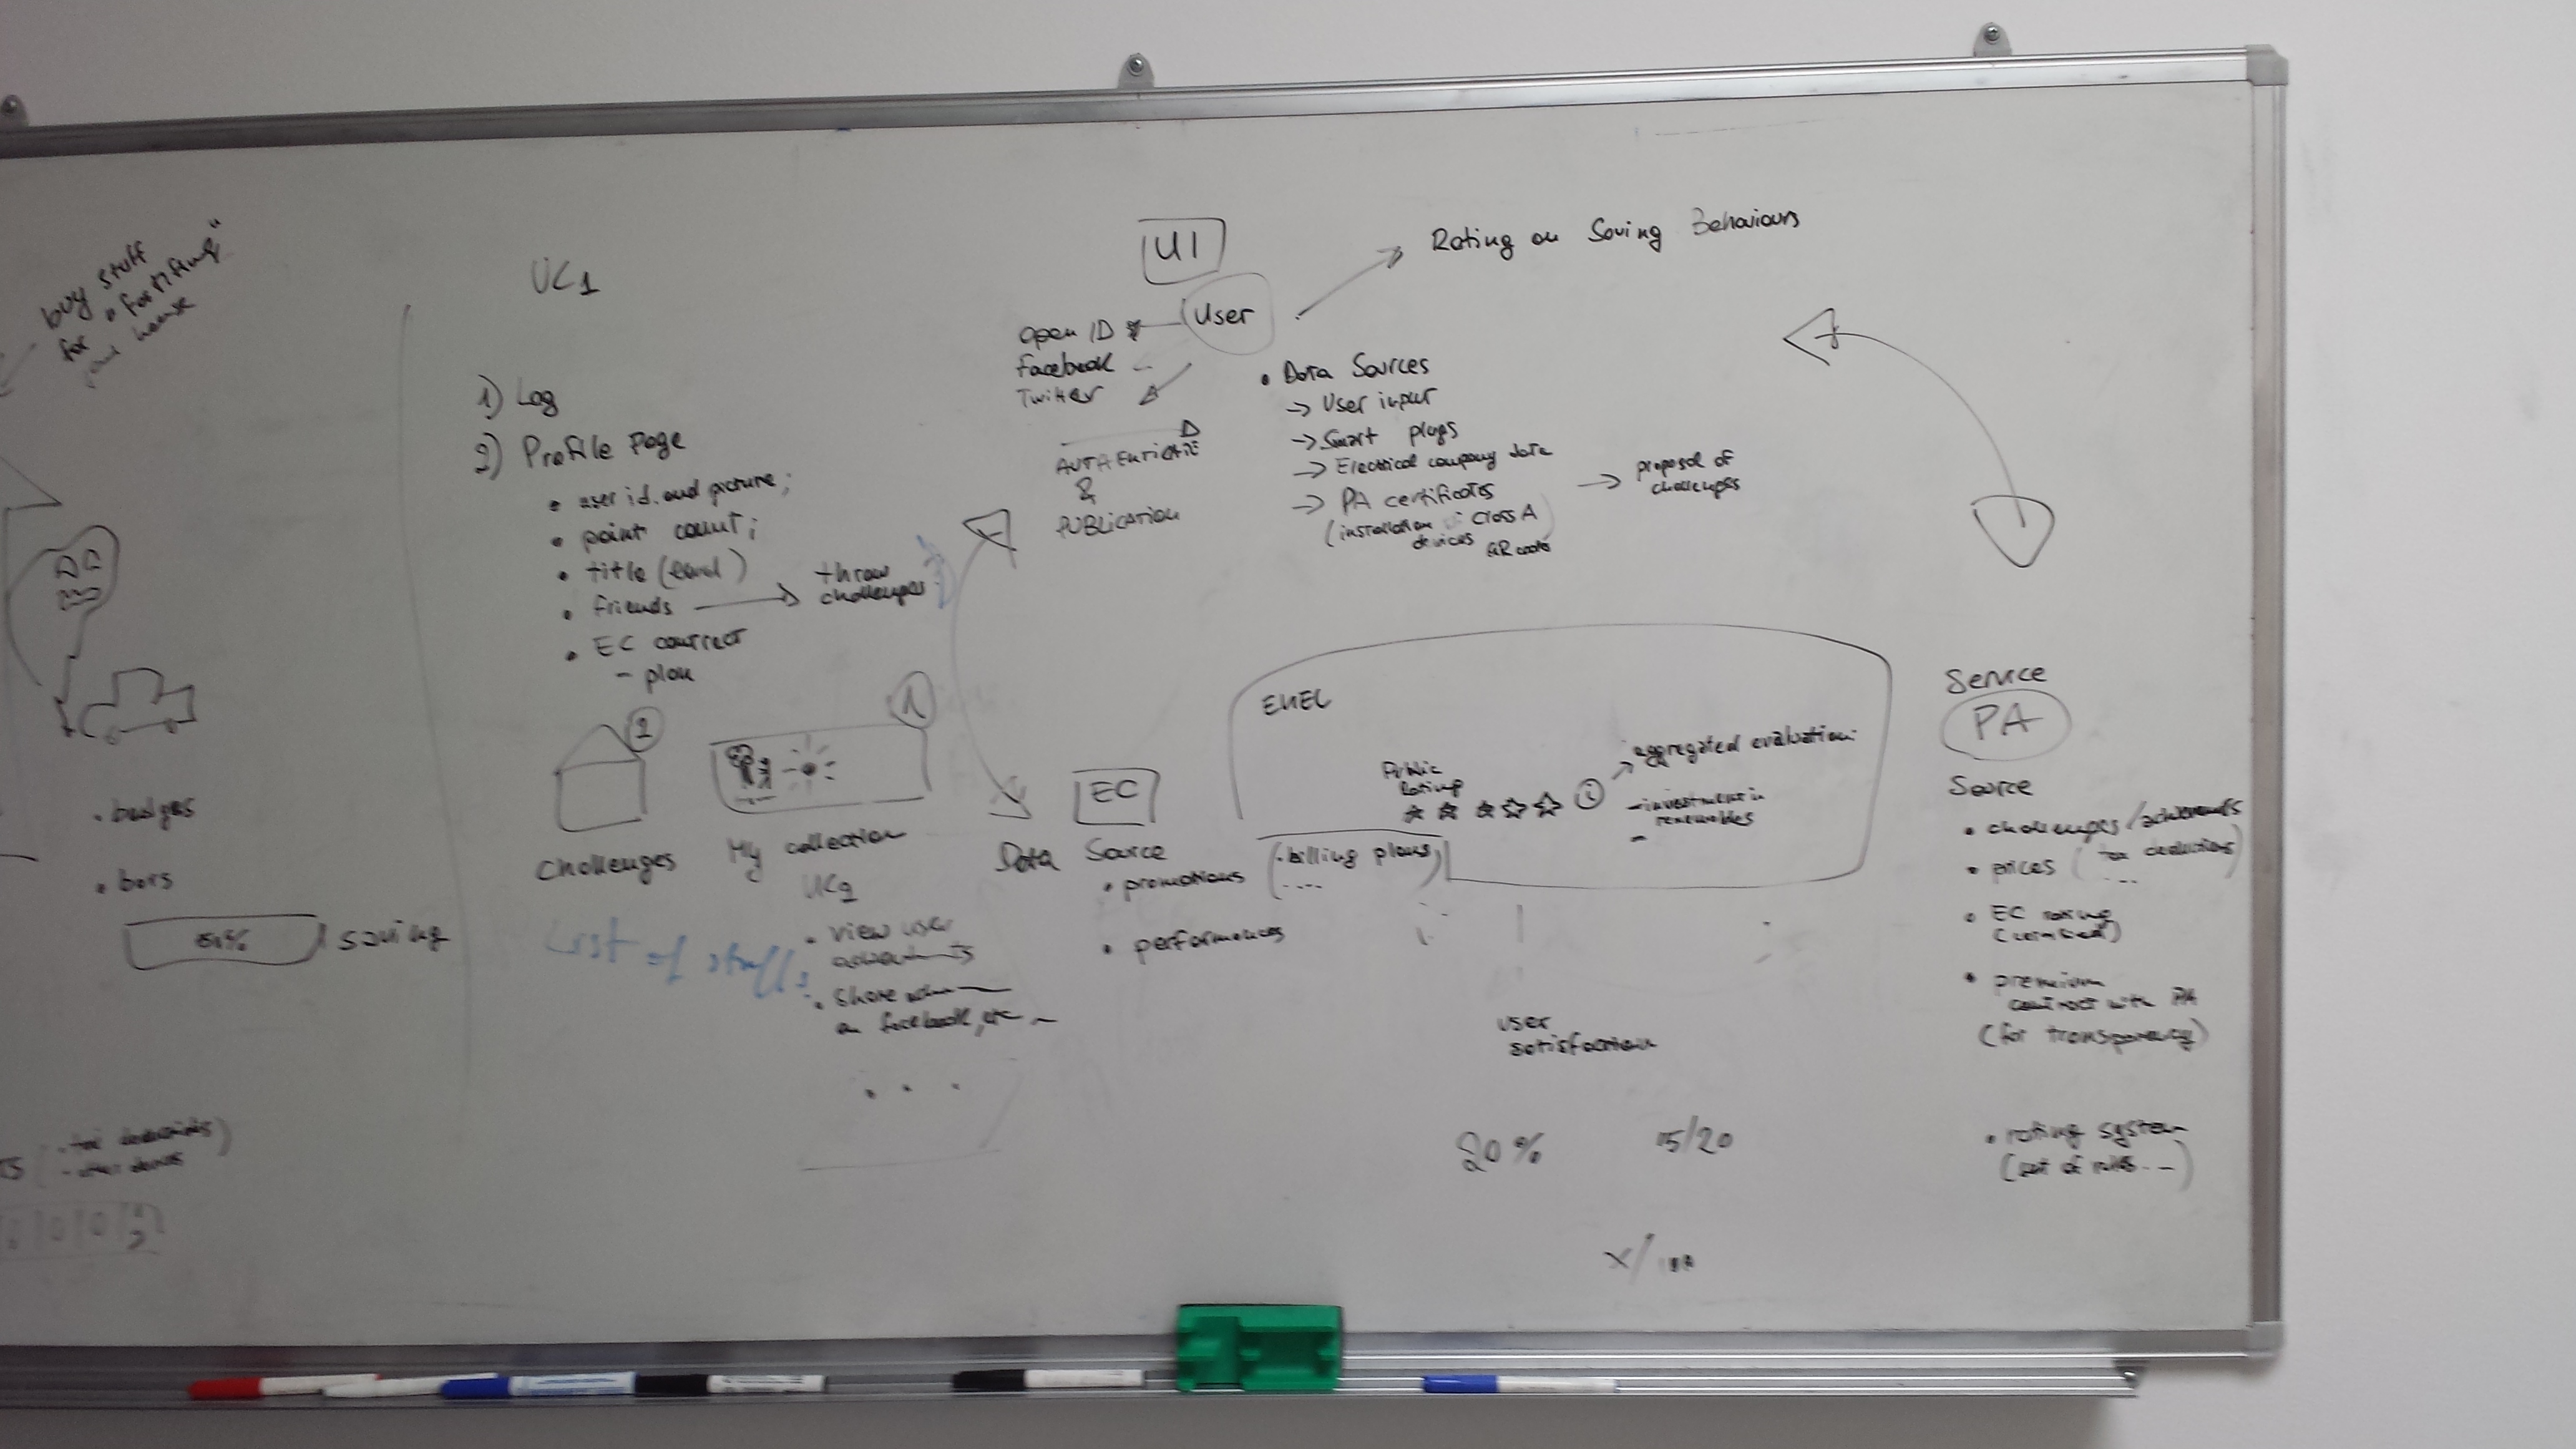 buy stuff
for "fortifying"
your house
• badges
• bars
saving
UC1
1) Log
2) Profile Page
• user id. and picture;
• point count;
• title (level)
• friends
throw
challenges
• EC contract
- plan
2
1
Challenges
My collection
List of stuffs
UC2
• view user
• share
on facebook, etc
. . .
UI
User
Open ID
Facebook
Twitter
AUTHENTICATE
&
PUBLICATION
Rating on Saving Behaviours
• Data Sources
→ User input
→ Smart plugs
→ Electrical company data
→ PA certificates
(installation : Class A
devices QR code)
→ proposal of
challenges
EC
Data Source
• promotions
(• billing plans)
....
• performances
ENEL
Public
Rating
i
aggregated evaluation:
- investment in
renewables
-
user
satisfaction
20%
15/20
X/
Service
PA
Source
• challenges/achievements
• prices (tax deductions)
...
• EC rating
• premium
contract with PA
(for transparency)
• rating system
(set of rules...)